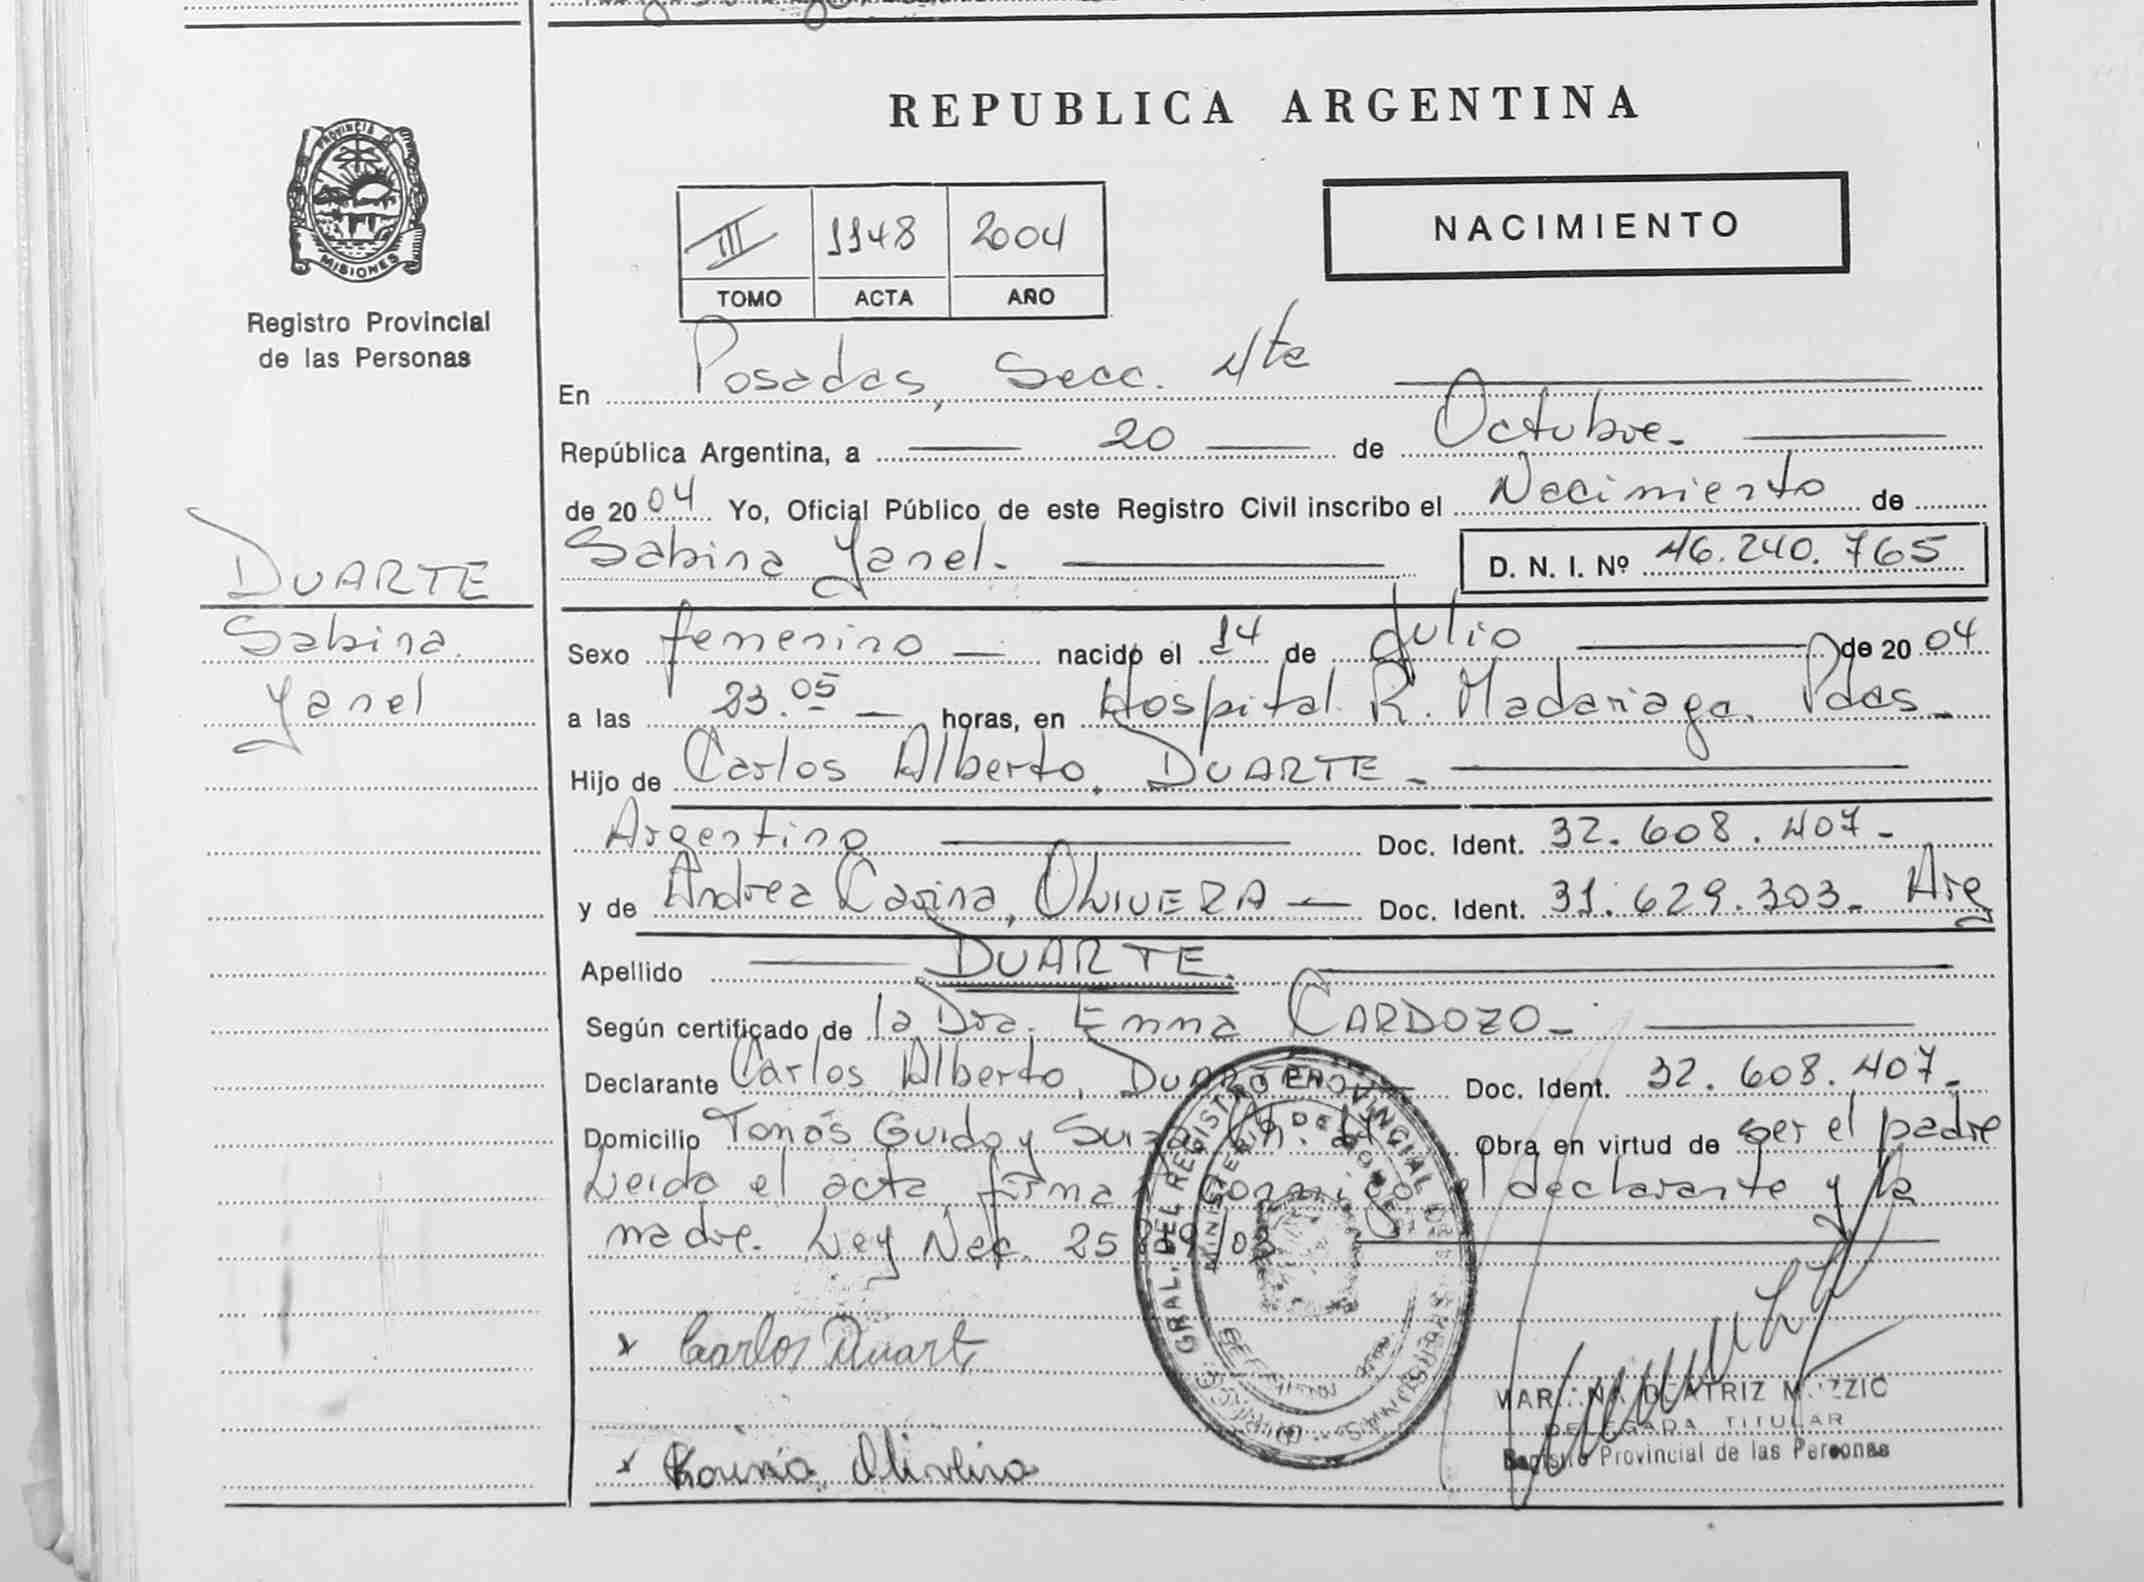 REPUBLICA ARGENTINA
PROVINCIA DE
MISIONES
Registro Provincial
de las Personas
NACIMIENTO
III 1148 2004
TOMO ACTA AÑO
En Posadas, Secc. 4ta
República Argentina, a 20 de Octubre.
de 2004 Yo, Oficial Público de este Registro Civil inscribo el Nacimiento de
Sabina Yanel. D. N. I. Nº 46.240.765
DUARTE
Sabina
Yanel
Sexo femenino nacido el 14 de Julio de 2004
a las 23.05 horas, en Hospital R. Madariaga. Pdas.
Hijo de Carlos Alberto, DUARTE
Argentino Doc. Ident. 32.608.407
y de Andrea Carina, OLIVERA Doc. Ident. 31.629.303. Arg
Apellido DUARTE.
Según certificado de la Dra. Emma CARDOZO
Declarante Carlos Alberto, Doc. Ident. 32.608.407
Domicilio Tomás Guido y Suiza Ch. Obra en virtud de ser el padre
Leido el acta firma conmigo el declarante y la
madre. Ley Nac.
GRAL. DEL REGISTRO PROVINCIAL DE
MINISTERIO DE
x Carlos Duarte
BEATRIZ
DELEGADA TITULAR
Registro Provincial de las Personas
x Karina Olivera